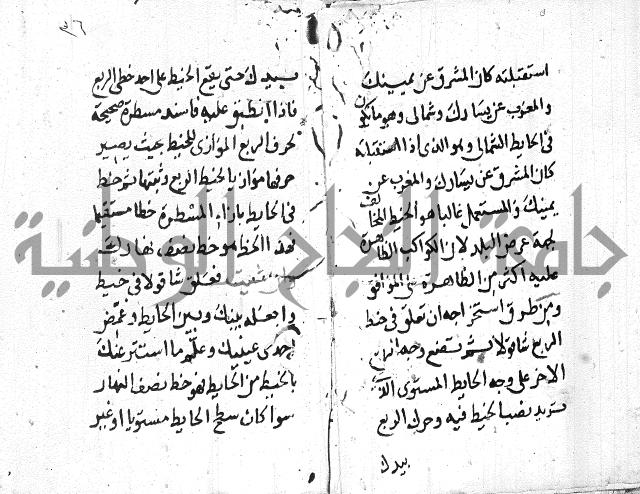 استقبلته كان المشرق عن يمينك
والمغرب عن يسارك وشمالي وهو ما يكون
في الحايط الشمالي وهو الذي اذا استقبلته
كان المشرق عن يسارك والمغرب عن
يمينك والمستعمل غالبا هو الحيط المخالف
لجهة عرض البلد لان الكواكب الظاهرة
عليه اكثر من الظاهرة على الموافق
ومن طرق استخراجه ان تعلق في خيط
الربع شاقولا ثم تضع وجه الربع
الاخر على وجه الحايط المستوي الذي
تريد نصب الخيط فيه وحرك الربع
بيدك
بيدك حتى يقع الخيط على احد خطي الربع
فاذا انطبق عليه فاسند مسطرة صحيحة
لحرف الربع الموازي للخيط بحيث يصير
حرفها موازيا لخيط الربع وثبتها ثم خط
في الحايط بازاء المسطرة خطا مستقيما
فهذا الخط هو خط نصف نهارك
وان شئت فعلق شاقولا في خيط
واجعله بينك وبين الحايط وغمض
احدى عينيك وعلم ما استتر عنك
بالخيط من الحايط فهو خط نصف النهار
سوا كان سطح الحايط مستويا او غير
جامعة النجاح الوطنية